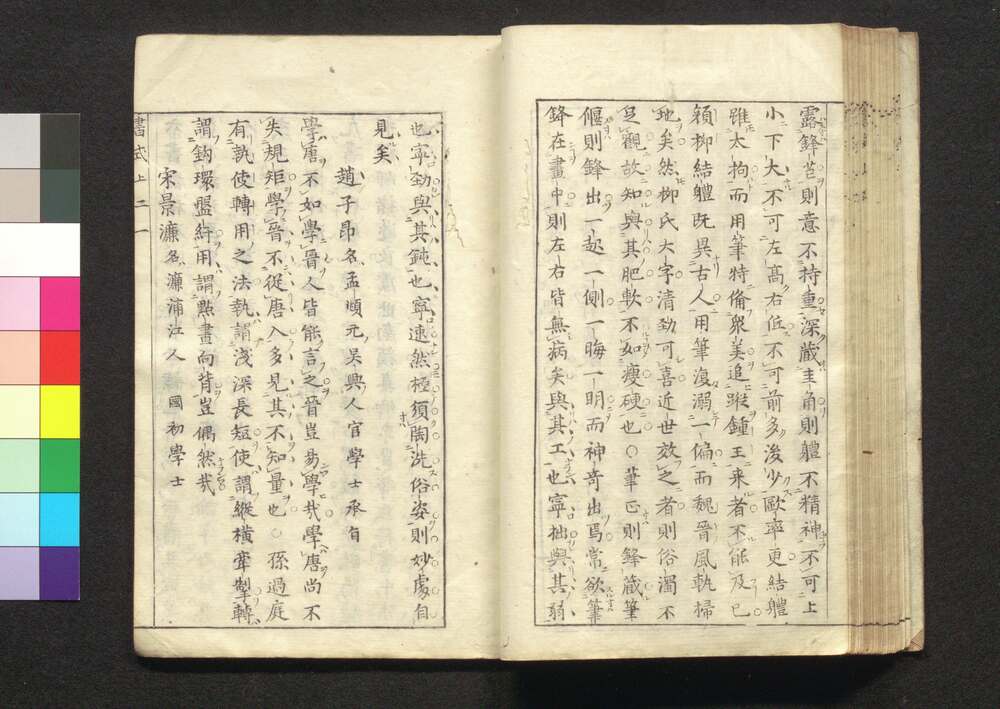 露鋒苦則意不持重深藏圭角則體不精神不可上
小下大不可左高右低不可前多後少歐率更結體
雖太拘而用筆特備衆美追蹤鍾王來者不能及已
顔柳結體既異古人用筆復溺一偏而魏晉風軌掃
地矣然柳氏大字清勁可喜近世效之者則俗濁不
足觀故知與其肥軟不如瘦硬也○筆正則鋒藏筆
偃則鋒出一起一側一晦一明而神奇出焉常欲筆
鋒在畫中則左右皆無病矣與其工也寧拙與其弱
也寧勁與其鈍也寧速然極須陶洗俗姿則妙處自
見矣
趙子昂名孟順元吳興人官學士承旨
學唐不如學晉人皆能言之晉豈易學哉學唐尚不
失規矩學晉不從唐入多見其不知量也○孫過庭
有執使轉用之法執謂淺深長短使謂縱横牽掣轉
謂鈎環盤紆用謂點畫向背豈偶然哉
宋景濂名濂浦江人國初學士
書式上 二一